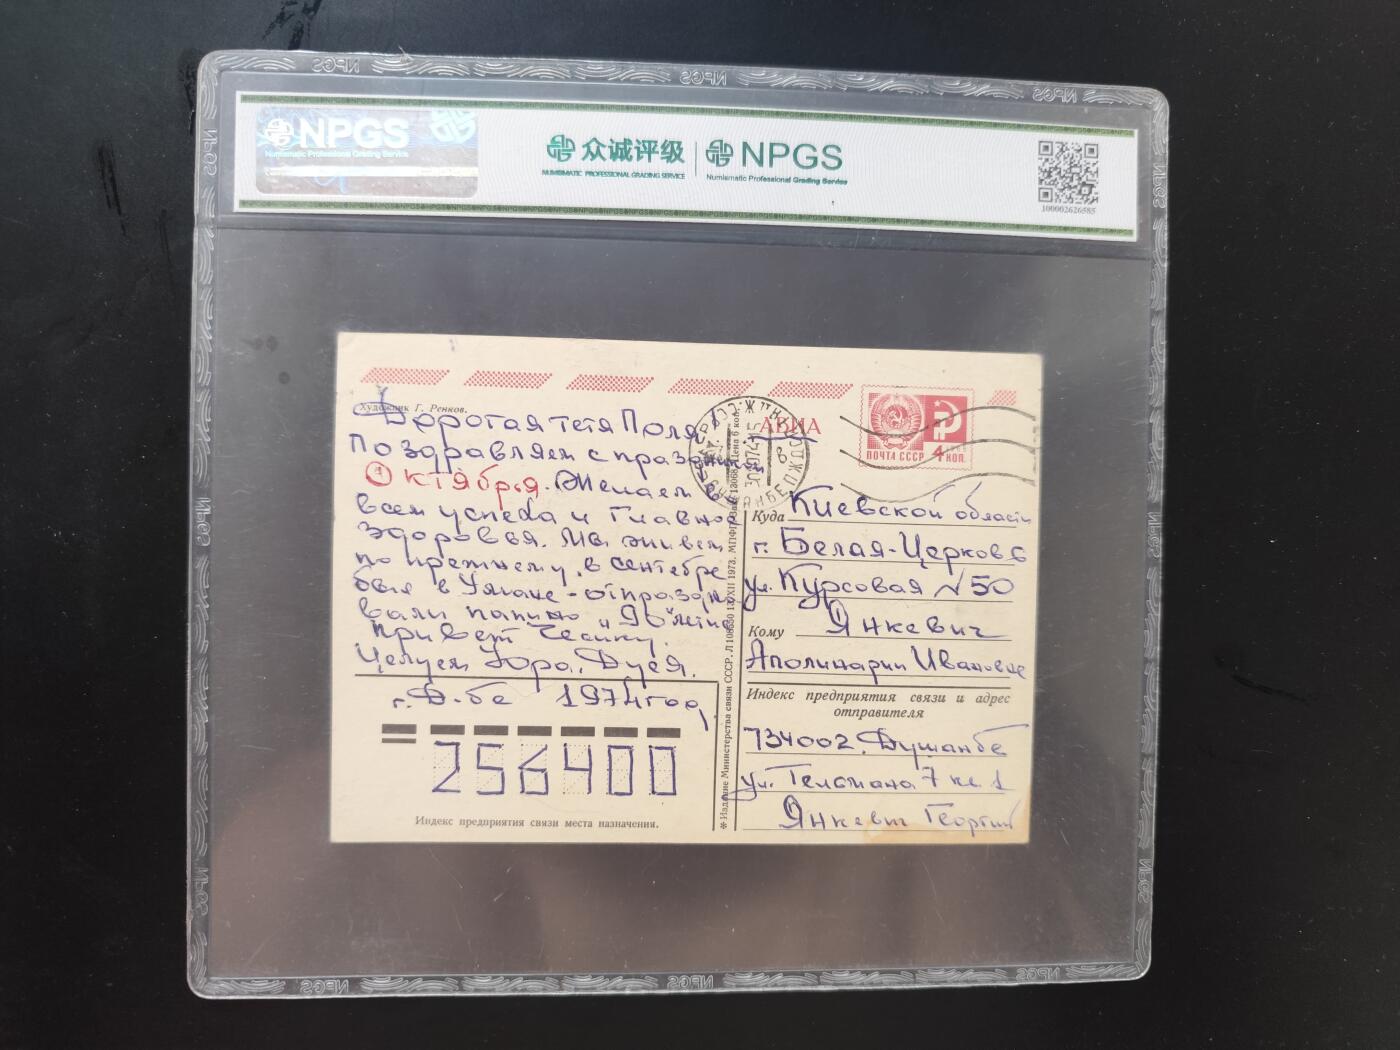 NPGS
Numismatic Professional Grading Service
众诚评级
NUMISMATIC PROFESSIONAL GRADING SERVICE
NPGS
Numismatic Professional Grading Service
100002626585
Художник Г. Ренков.
Дорогая тетя Поля
Поздравляем с праздником
Октября. Желаем
всем успеха и главное
здоровья. Мы живем
по прежнему, в сентябре
были в Умане - отпраздно
вали папино "90" летие
Привет Чесику.
Целуем Юра, Дуся.
г. Д-бе 1974 год
256400
Индекс предприятия связи места назначения.
Издание Министерства связи СССР.
1973.
Цена 6 коп.
АВИА
ПОЧТА СССР 4 КОП.
Куда Киевской области
г. Белая-Церковь
ул. Курсовая N 50
Кому Янкевич
Аполинарии Ивановне
Индекс предприятия связи и адрес
отправителя
734002. Душанбе
ул. Тельмана 7 кв. 1
Янкевич Георгий